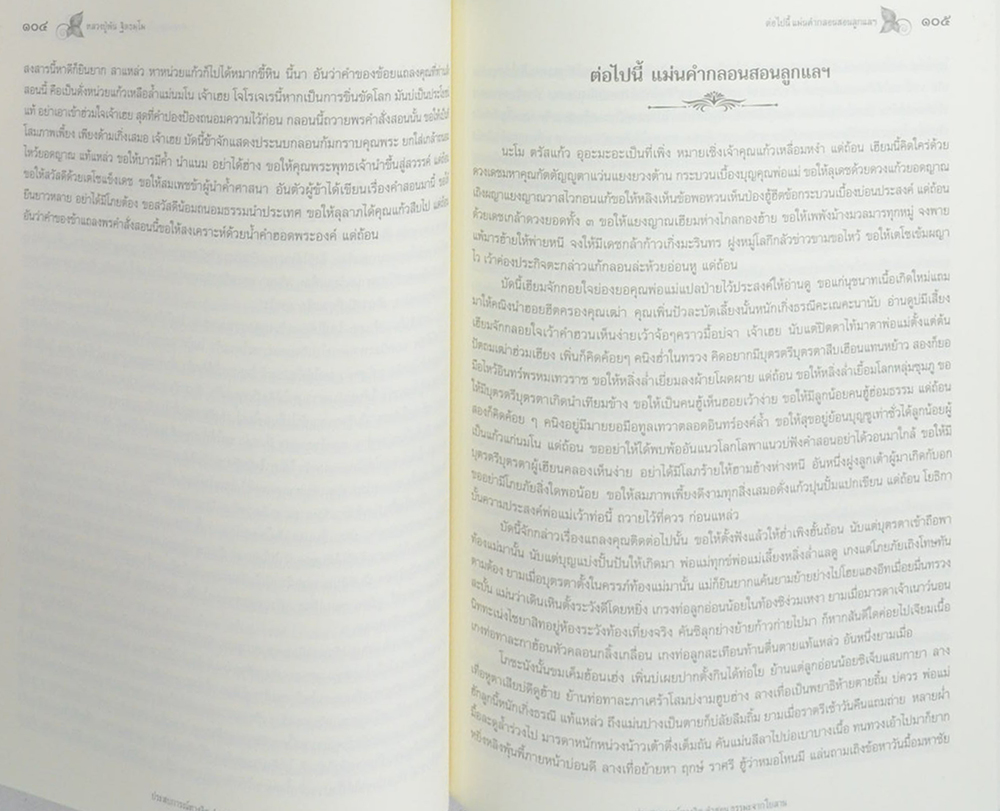 ๑๐๔ หลวงปู่พัน ฐิตธมฺโม
สงสารนี้หาดีก็ยินยาก สาแหล่ว หาหน่วยแก้วก็ไปได้หมากขี้หิน นี้นา อันว่าคำของข้อยแถลงคุณที่ท่าน
สอนนี้ คือเป็นดั่งหน่วยแก้วเหลือล้ำแม่นมโน เจ้าเฮย โจโรเจเรนี้หากเป็นการขิ่นขัดโลก มันบ่เป็นประโยชน์
แท้ อย่าเอาเข้าฮ่วมใจเจ้าเฮย สุดที่คำบ่องป้องถนอมความไว้ก่อน กลอนนี้ถวายพรคำสั่งสอนนั้น ขอให้
โสมภาพเพี้ยง เพียงด้ามเกิ่งเสมอ เจ้าเฮย บัดนี้ข้าจักแสดงประนบกลอนก้มกราบคุณพระ ยกใส่เกล้า
ไหว้ยอดญาณ แท้แหล่ว ขอให้บารมีค้ำ นำแนม อย่าได้ฮ่าง ขอให้คุณพระพุทธเจ้านำขึ้นสู่สวรรค์ แด่
ขอให้สวัสดีด้วยเดโชแข็งเดช ขอให้สมเพชข้าผู้นำค้ำศาสนา อันตัวผู้ข้าได้เขียนเรื่องคำสอนมานี้ ขอ
ยืนยาวหลาย อย่าได้มีภัยต้อง ขอสวัสดีน้อมถนอมธรรมนำประเทศ ขอให้ลุลาภได้คุณแก้วสืบไป แด่
อันว่าคำของข้าแถลงพรคำสั่งสอนนี้ขอให้สงเคราะห์ด้วยน้ำคำฮอดพระองค์ แด่ถ้อน
ต่อไปนี้ แม่นคำกลอนสอนลูกแลฯ ๑๐๕
ต่อไปนี้ แม่นคำกลอนสอนลูกแลฯ
นะโม ตรัสแก้ว อุอะมะอะเป็นที่เพิ่ง หมายเซิ่งเจ้าคุณแก้วเหลื่อมหงำ แด่ถ้อน เฮียมนี้คิดใคร่ด้วย
ดวงเดชมหาคุณกัตตัญญูตาแว่นแยงยวงด้าน กระบวนเบื้องบุญคุณพ่อแม่ ขอให้ลุเดชด้วยดวงแก้วยอดญาณ
เถิงผญาแยงญาณวาสไวกอนแก้ขอให้หลิงเห็นข้อพอหวนเห็นป่องฮู้ฮีดข้อกระบวนเบื้องบ่อนประสงค์ แด่ถ้อน
ด้วยเดชเกล้าดวงยอดทั้ง ๓ ขอให้แยงญาณเฮียมห่างไกลกองฮ้าย ขอให้เพพังม้างมวลมารทุกหมู่ จงพาย
แพ้มารฮ้ายให้พ่ายหนี จงให้มีเดชกล้าก้าวเกิ่งมะรินทร ฝูงหมู่โลกีกลัวข่าวขามขอไหว้ ขอให้เตโชเข้มผญา
ไว เว้าค่องประกิจตะกล่าวแก้กลอนล่ะห้วยอ่อนหู แด่ถ้อน
บัดนี้เฮียมจักกอยใจย่องยอคุณพ่อแม่แปลป่ายไว้ประสงค์ให้อ่านดู ขอแก่นุชนาทเนื้อเกิดใหม่แถม
มาให้คณิงนำฮอยฮีดครองคุณเฒ่า คุณเพิ่นปัวละบัดเลี้ยงนั้นหนักเกิ่งธรณีคะเณคะนานับ อ่านดูบ่มีเสี้ยง
เฮียมจักกลอยใจเว้าคำฮวนเห็นง่ายเว้าจ้อๆคราวมื้อบ่จา เจ้าเฮย นับแต่ปิดตาไท้มาดาพ่อแม่ตั้งแต่ต้น
ปัดถมเฒ่าฮ่วมเฮียง เพิ่นก็คิดค้อยๆ คนิงฮ่ำในทรวง คิดอยากมีบุตรตรีบุตรตาสืบเฮือนแทนหย้าว สองก็ยอ
มือไหว้อินทร์พรหมเทวราช ขอให้หลิงล่ำเยี่ยมลงผ้ายโผดผาย แด่ถ้อน ขอให้หลิงล่ำเยี่ยมโลกหลุ่มชุมภู ขอ
ให้มีบุตรตรีบุตรตาเกิดนำเทียมข้าง ขอให้เป็นคนฮู้เห็นฮอยเว้าง่าย ขอให้มีลูกน้อยคนฮู้ฮ่อมธรรม แด่ถ้อน
สองก็คิดค้อย ๆ คนิงอยู่มีมายยอมือทูลเทวาตลอดอินทร์องค์ล้ำ ขอให้สุขอยู่ย้อนบุญชูเท่าชั่วได้ลูกน้อยผู้
เป็นแก้วแก่นมโน แด่ถ้อน ขออย่าให้ได้พบพ้ออันแนวโลกโลพาแนวบ่ฟังคำสอนอย่าได้วอนมาใกล้ ขอให้มี
บุตรตรีบุตรตาผู้เฮียนคลองเห็นง่าย อย่าได้มีโลภร้ายให้ฮามฮ้างห่างหนี อันหนึ่งฝูงลูกเต้าผู้มาเกิดกับอก
ขออย่ามีโภยภัยสิ่งใดพอน้อย ขอให้สมภาพเพี้ยงดีงามทุกสิ่งเสมอดั่งแก้วปุนปั้นแปกเขียน แด่ถ้อน โยธิกา
บั้นความประสงค์พ่อแม่เว้าท่อนี้ ถวายไว้ที่ควร ก่อนแหล่ว
บัดนี้จักกล่าวเรื่องแถลงคุณติดต่อไปนั้น ขอให้ตั้งฟังแล้วให้ฮ่ำเพิงฮั้นถ้อน นับแต่บุตรตาเข้าถือพา
ท้องแม่มานั้น นับแต่บุญแบ่งปั้นปันให้เกิดมา พ่อแม่ทุกข์พ่อแม่เสี้ยงหลิงล่ำแลดู เกงแต่โภยภัยเถิงโทษทัน
ตามต้อง ยามเมื่อบุตรตาตั้งในครรภ์ท้องแม่มานั้น แม่ก็ยินยากแค้นยามย้ายย่างไปโฮยแฮงฮีทเมื่อยมึนทรวง
ละบั้น แม่นว่าเดินเหินตั้งระวังดีโดยหยิ่ง เกรงท่อลูกอ่อนน้อยในท้องซิง่วมเหงา ยามเมื่อมารดาเจ้าเนาว์นอน
นิททะเน่งไขยาสิทอยู่ห้องระวังท้องเที่ยงจริง คันซิลุกย่างย้ายก้าวก่ายไปมา ก็หากสันดีใดค่อยไปเจียมเนื้อ
เกงท่อทาละกาฮ้อนหัวคลอนกลิ้งเกลื่อน เกงท่อลูกสะเทือนท้านดื่นตายแท้แหล่ว อันหนึ่งยามเมื่อ
โภชะนังนั้นขมเค็มฮ้อนเฮ่ง เพิ่นบ่เผยปากตั้งกินได้ท่อใย ย้านแต่ลูกอ่อนน้อยซิเจ็บแสบกายา ลาง
เทื่อหูตาเสียบ่ดีดูฮ้าย ย้านท่อทาละภาเศร้าโสมบ่งามฮูบฮ่าง ลางเทื่อเป็นพยาธิท้ายตายถิ้ม บ่ควร พ่อแม่
ฮักลูกนี้หนักเกิ่งธรณี แท้แหล่ว ถึงแม่นปางเป็นตายก็บ่ลัยลืมถิ้ม ยามเมื่อราตรีเช้าวันคืนแถมถ่าย หลายฝ่ำ
มื้อละดูล้ำร่วงไป มารดาหนักหน่วงน้าวเต้าตึ่งเต็มถัน คันแม่นลีลาไปบ่อเบาบางเนื้อ ทนทวงเอ้าไปมาก็ยาก
หยิ่งหลิงพุ้นพี้ภายหน้าบ่อนดี ลางเทื่อย้ายหา ฤกษ์ ราศรี ฮู้ว่าหมอโหนมี แล่นถามเถิงข้อหาวันมื้อมหาชัย